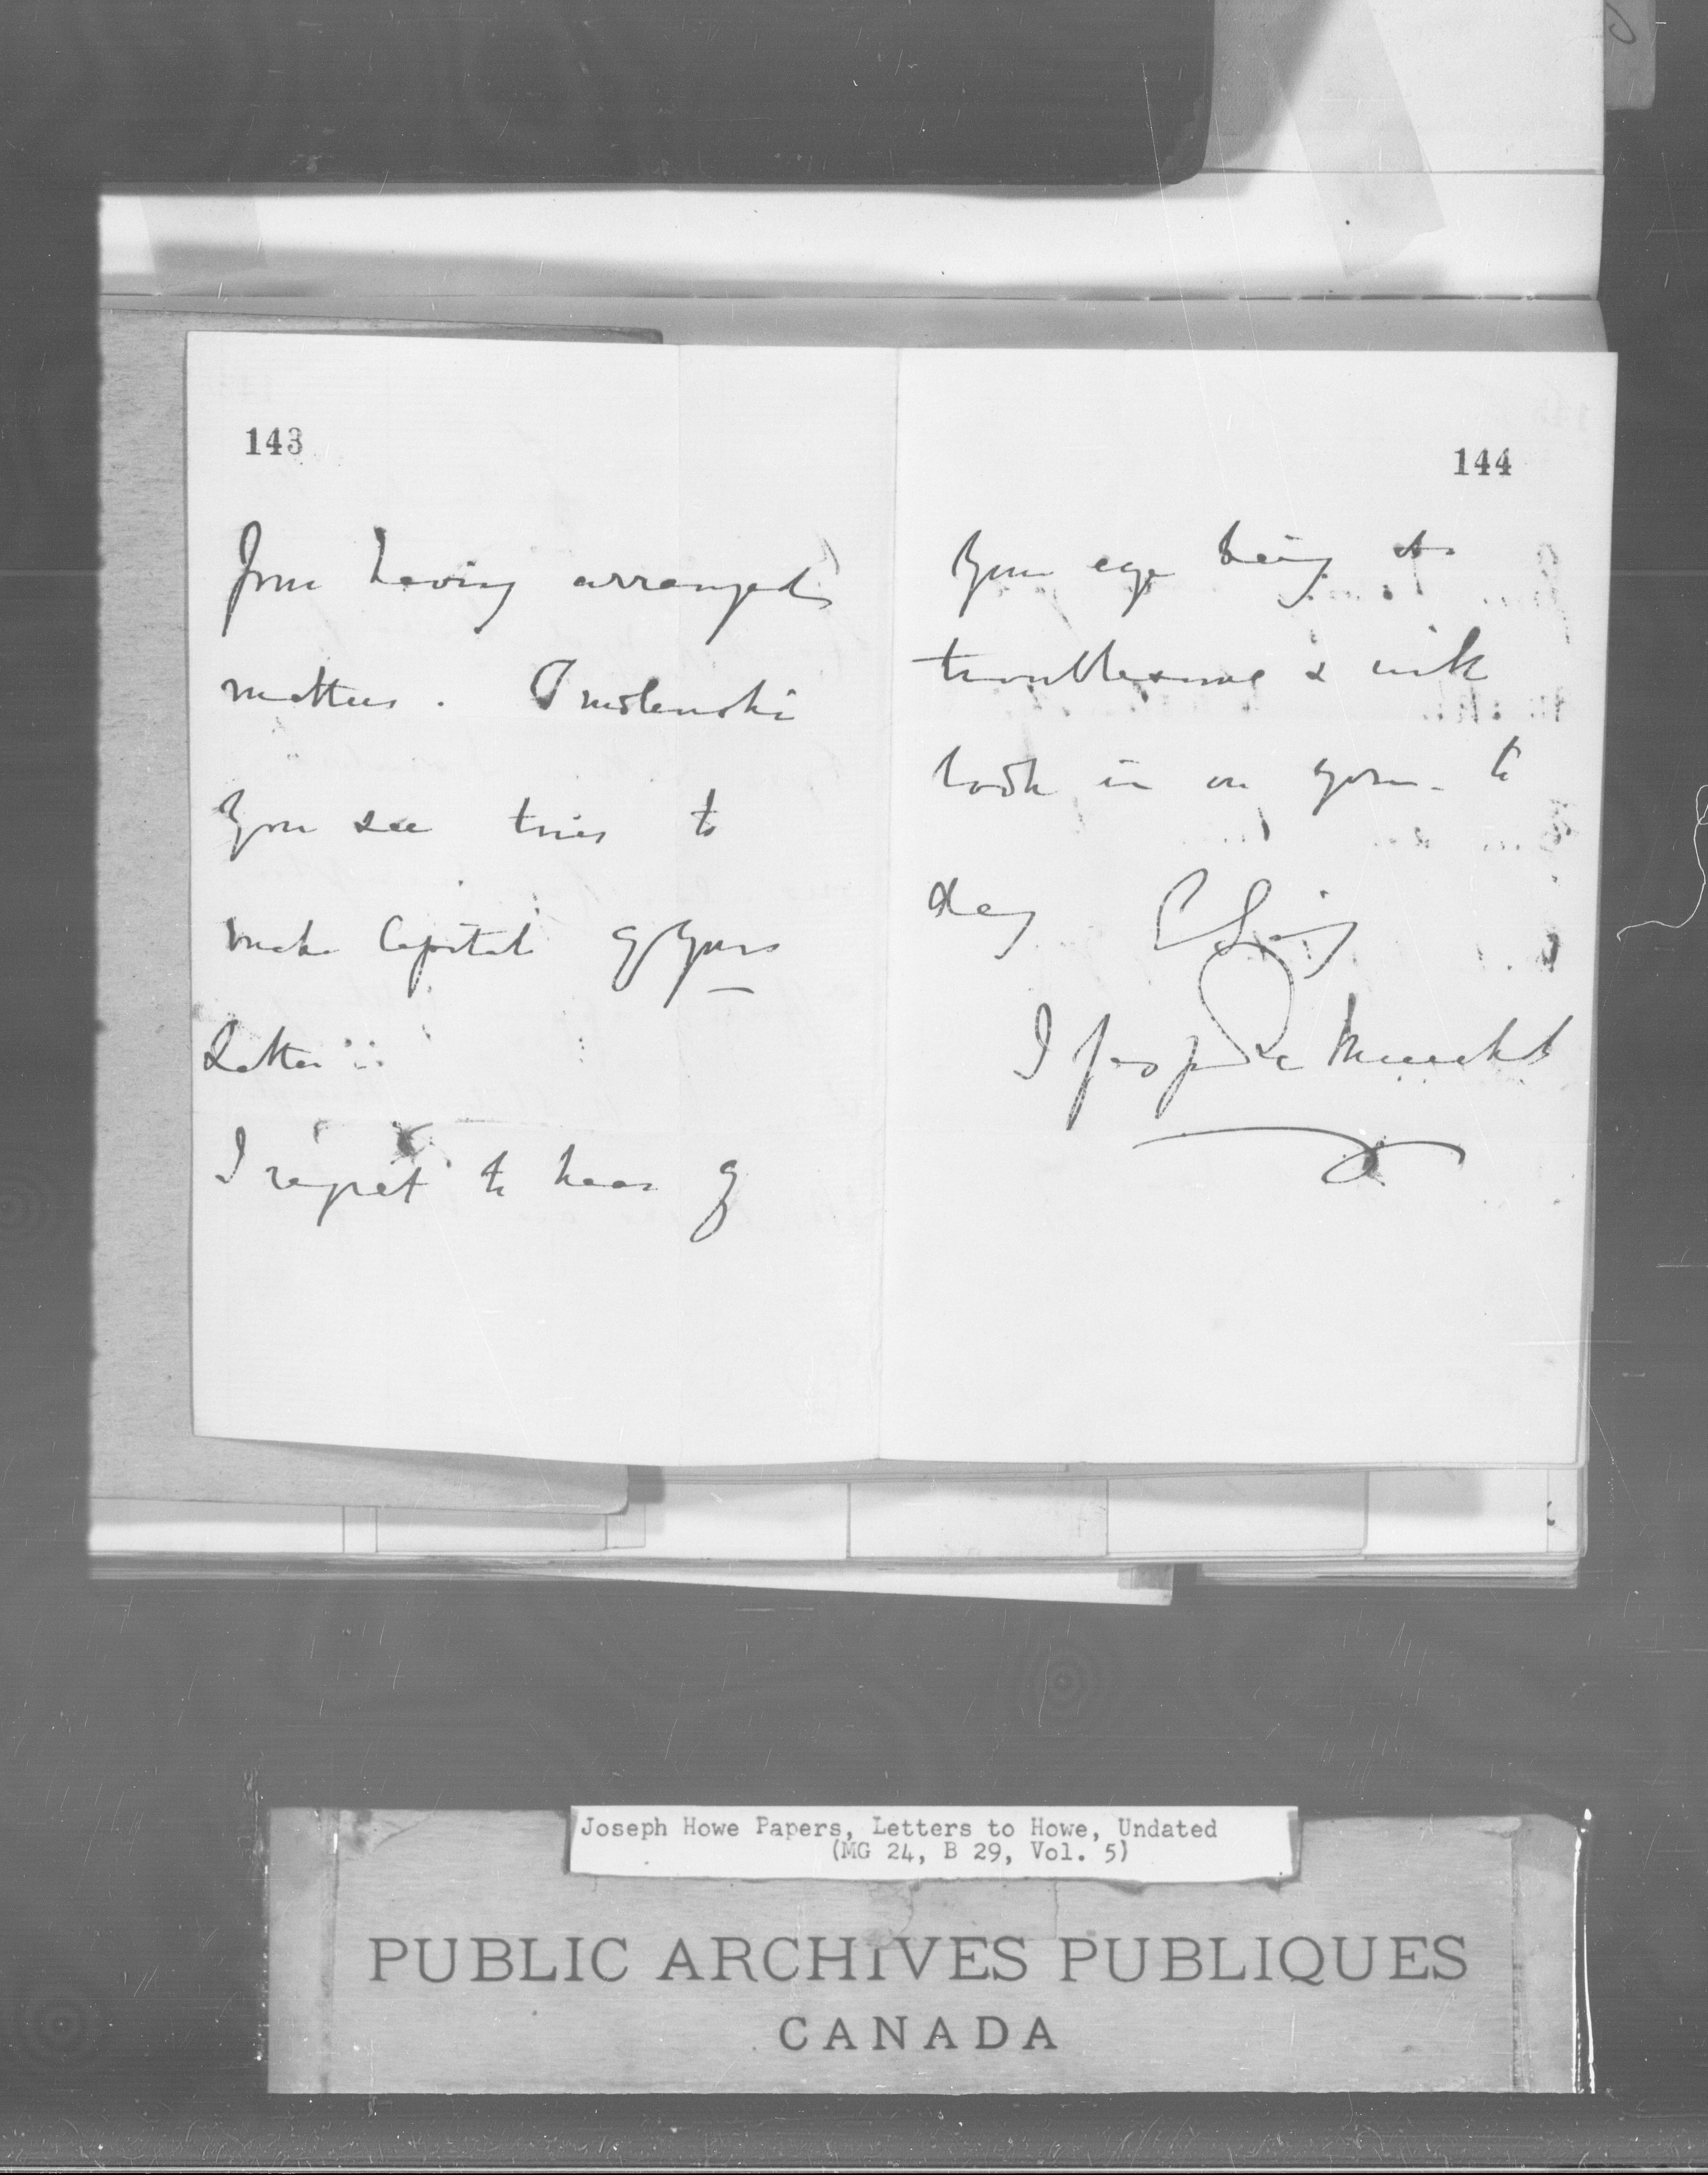 143
your having arranged
matters. Smolenski
you see tries to
make Capital of yours
Letter
I regret to hear of
144
your eye being so
troublesome & will
look in on you - to
day
Joseph Howe Papers, Letters to Howe, Undated
(MG 24, B 29, Vol. 5)
PUBLIC ARCHIVES PUBLIQUES
CANADA